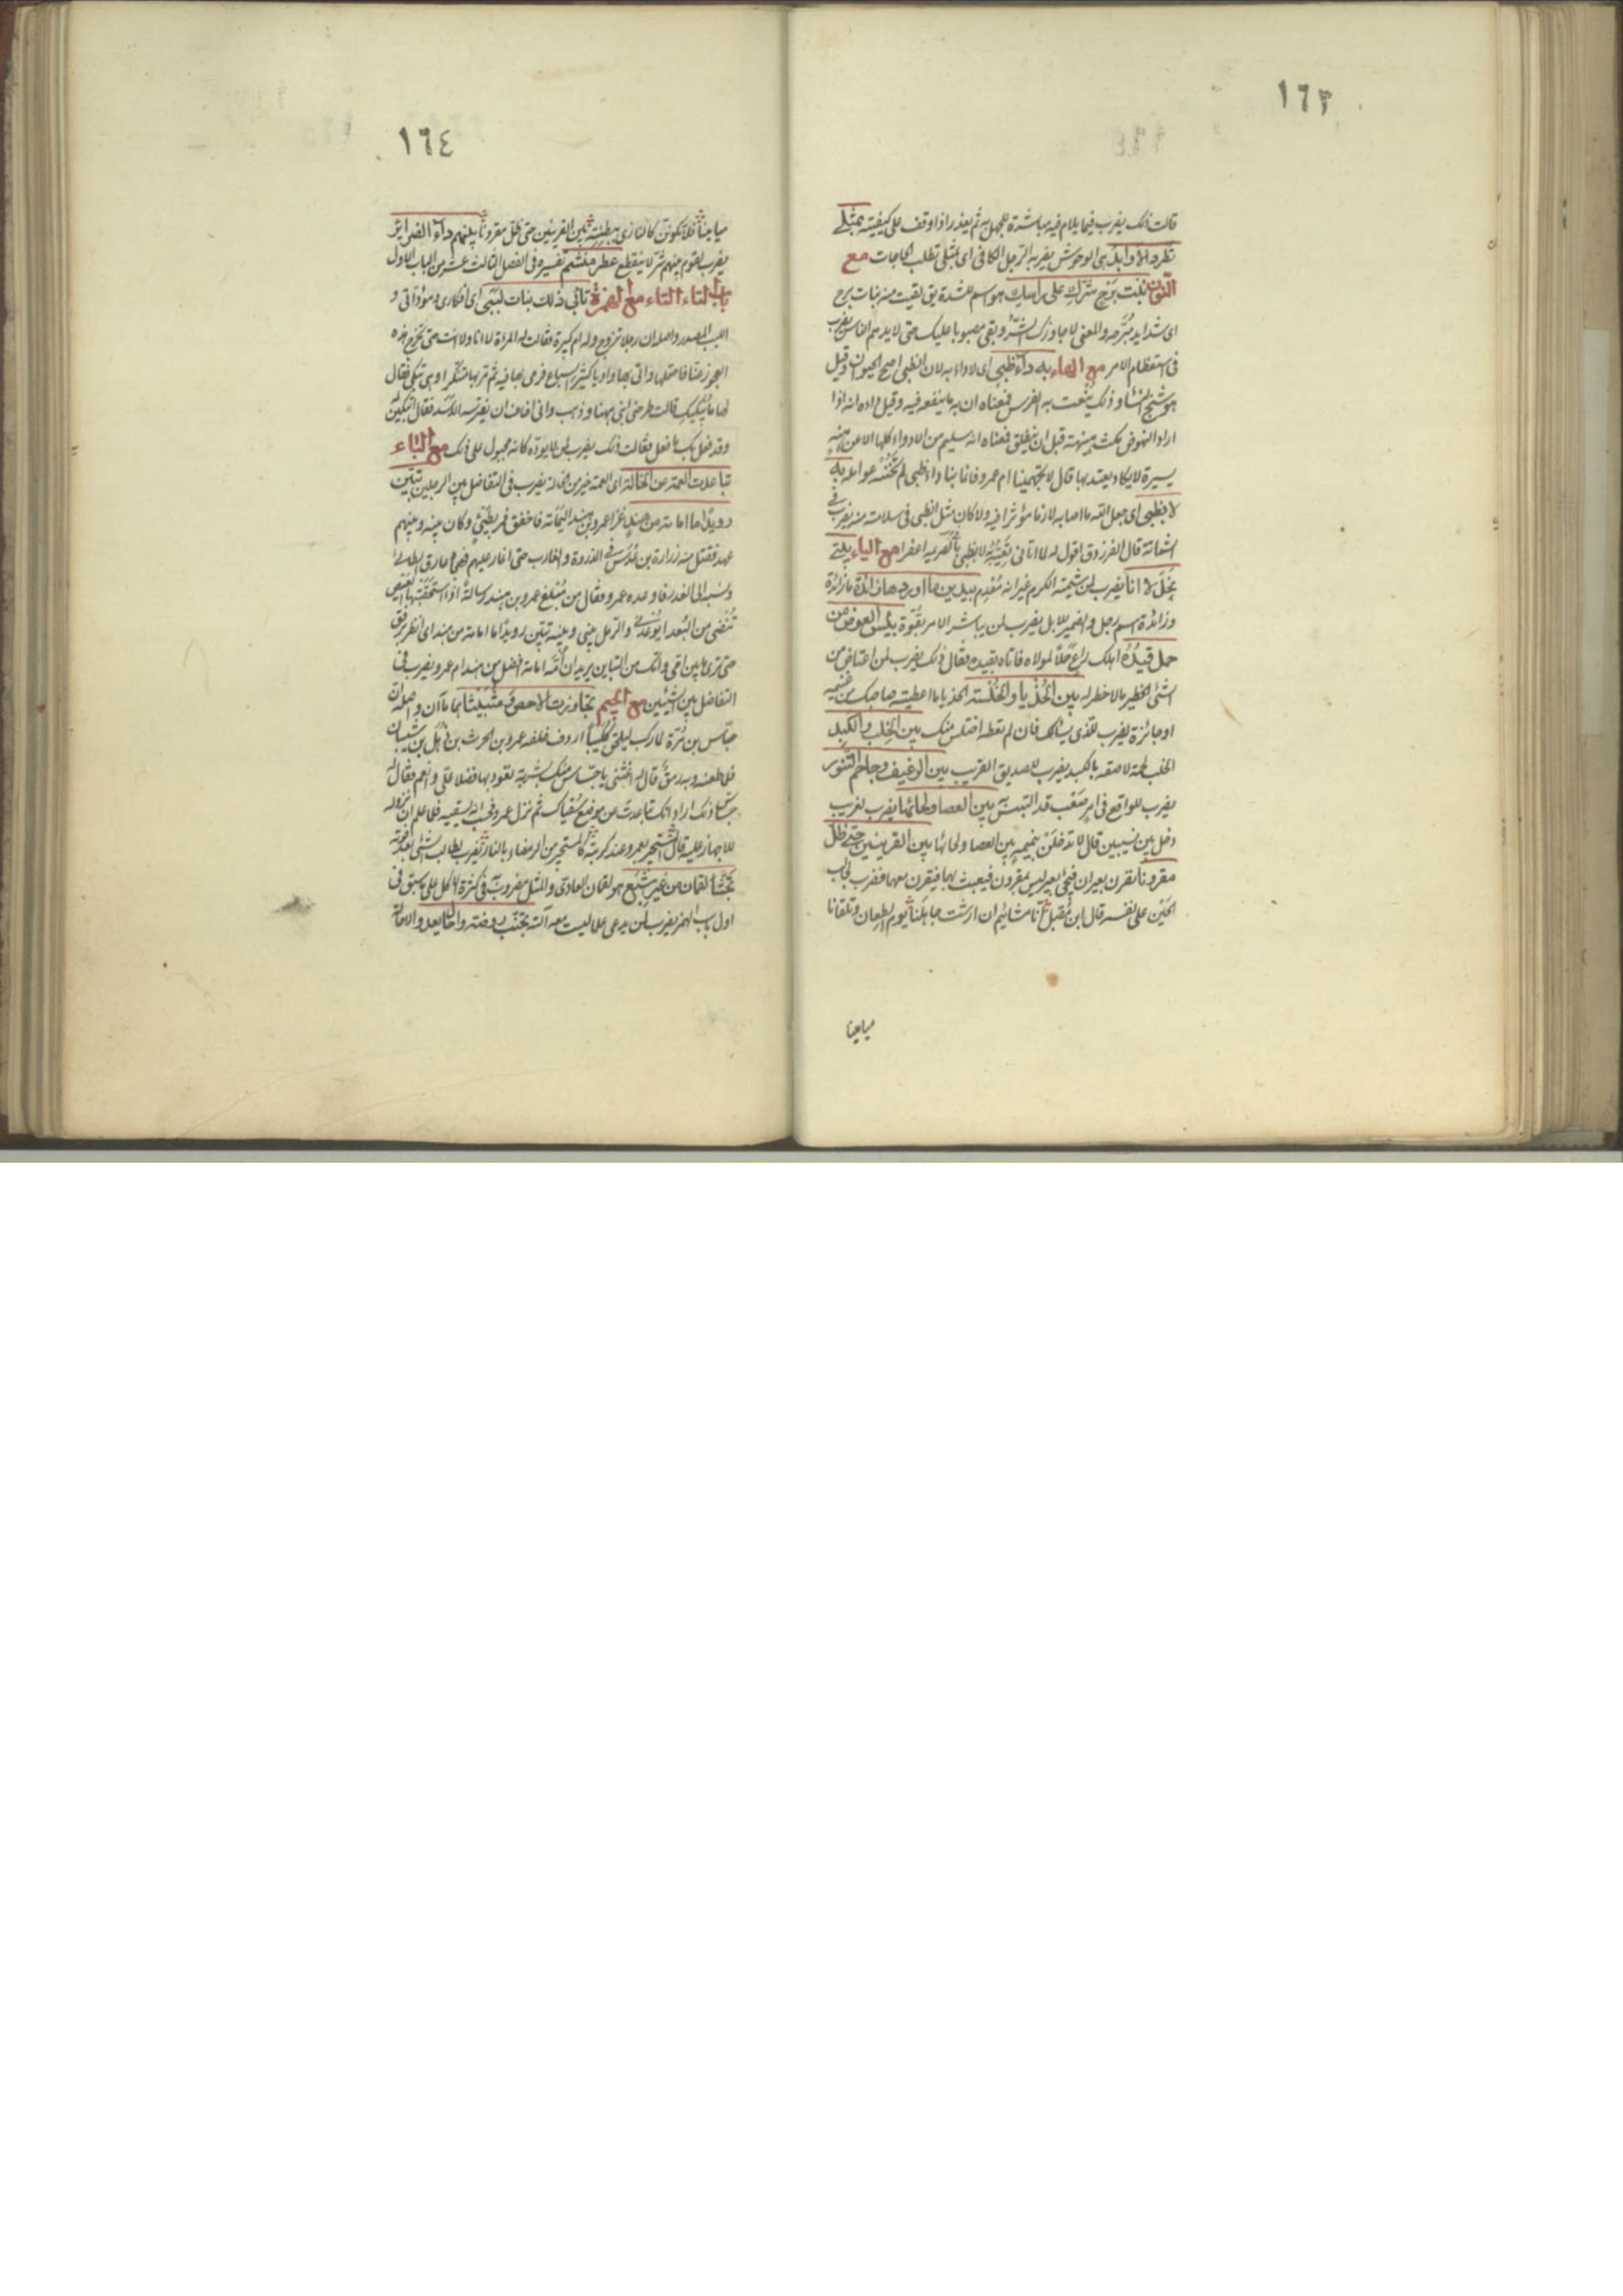 ١٦٣
قالت ذلك يضرب فيما يلام فيه مباشرة للجهل به ثم يعذر اذا وقف على كيفيته بمثلى
تطرد الاوابد هى الوحوش يضربه الرجل الكافى اى بمثلى تطلب الحاجات مع
النون بنت برح شرك على راسك هو اسم للشدة يق لقيت منه بنات برح
اى شدايد مبرحه والمعنى لا جاوزك الشر وبقى مصبوبا عليك حتى لا يدهم الناس يضرب
فى استعظام الامر مع الهاء به داء ظبى اى لا داء به لان الظبى اصح الحيوان وقيل
هو شنج النسا وذلك ينعت به الفرس فمعناه ان به ما ينفعه فيه وقيل داده انه اذا
اراد النهوض مكث هنيهة قبل ان ينطلق فمعناه انه سليم من الادواء كلها الا عن هنة
يسيرة لا يكاد يعتد بها قال لا تجهمينا ام عمرو فانما بنا داء ظبى لم تخنه عوامله به
لا بظبى اى جعل الله ما اصابه لازما مؤثرا فيه ولا كان مثل الظبى فى سلامته منه يضرب فى
الشماتة قال الفرزدق اقول له لما اتانى نعيه به لا بظبى بالصريمة اعفرا مع الياء يلتى
بخل لا انا يضرب لمن شيمته الكرم غير انه معدم بيدين ما اوردها زائدة ما زائدة
وزائدة اسم رجل والضمير للابل يضرب لمن يباشر الامر بقوة بئس العوض من
جمل قيده اهلك راع جملا لمولاه فاتاه بقيده فقال ذلك يضرب لمن اعتاض من
الشئ الخطير ما لا خطر له بين الحذيا والخلسة الحذيا ما اعطيته صاحبك من غنيمة
او جائزة يضرب للذى يسالك فان لم تعطه اختلس منك بين الخلب والكبد
الخلب لحمة لاصقة بالكبد يضرب للصديق القريب بين الرغيف وجاحم التنور
يضرب للواقع فى امر صعب قد التبس به بين العصا ولحائها يضرب لغريب
دخل بين نسيبين قال لا تدخلن بنميمه بين العصا ولحائها بين القرينين حتى ظل
مقرونا تقرن بعيران فيجئ بعير ليس بمقرون فيعبث بها فيقرن معهما فضرب لجالب
الحين على نفسه قال ابن مقبل انا مشائيم ان ارشت جاهلنا يوم الطعان وتلقانا
ميامينا
١٦٤
ميامينا فلا تكونن كالنازى ببطنته بين القرينين حتى ظل مقرونا بينهم داء الضرائر
يضرب لقوم بينهم شر لا ينقطع عطر منشم تفسيره فى الفصل الثالث عشر من الباب الاول
باب التاء التاء مع الهمزة تابى ذلك بنات لببى اى افكارى ومؤداتى و
اللبب المصدر واصله ان رجلا تزوج وله ام كبيرة فقالت له المرءة لا انا ولا انت حتى تخرج هذه
العجوز عنا فاحتملها واتى بها واديا كثير السباع فرمى بها فيه ثم مر بها متنكرا وهى تبكى فقال
لها ما يبكيك قالت طرحنى ابنى ههنا وذهب وانى اخاف ان يفترسه الاسد فقال اتبكين له
وقد فعل بك ما فعل فقالت ذلك يضرب لمن لا يوده كانه مجبول على ذلك مع الباء
تباعدت العمة عن الخالة اى العمة خير من الخالة يضرب فى التفاضل بين الرجلين تبين
رويدا ما امامة من هند غزا عمرو بن هند اليمامة فاخفق فمر بطيئ وكان بينه وبينهم
عهد فقتل منه زرارة بن عدس فى الذروة والغارب حتى اغار عليهم فهجاه عارق الطائى
ونسبه الى الغدر فاوعده عمرو فقال من مبلغ عمرو بن هند رسالة اذا استحقبتها العيس
تنضى من البعد ايوعدنى والرمل بينى وبينه تبين رويدا ما امامة من هند اى انظر برفق
حتى ترى ما بين امى وامك من التباين يريد ان امه امامة افضل من هند ام عمرو يضرب فى
التفاضل بين الشيئين مع الجيم تجاوزت الاحص وشبيثا هما ماآن واصله ان
جساس بن مرة لما ركب ليلحق كليبا اردف خلفه عمرو بن الحرث بن ذهل بن شيبان
فلما طعنه وبه رمق قال له اغثنى يا جساس منك بشربة تعود بها فضلا على وانعم فقال له
جساس ذلك اراد انك تباعدت عن موضع سقياك ثم نزل عمرو فحسب انه يسقيه فلما علم ان نزوله
للاجهاز عليه قال المستجير بعمرو عند كربته كالمستجير من الرمضاء بالنار يضرب لطالب شئ بعد فوته
تجشأ لقمان من غير شبع هو لقمان العادى والمثل مضروب به فى كثرة الاكل على ما سبق فى
اول باب الهمزة يضرب لمن يدعى ما ليست معه آلته تجنب روضة واحال يعدو الاحالة